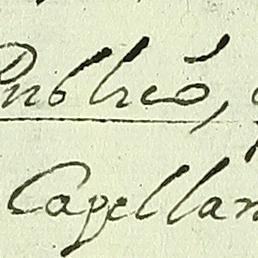 Publicó,
Capellan